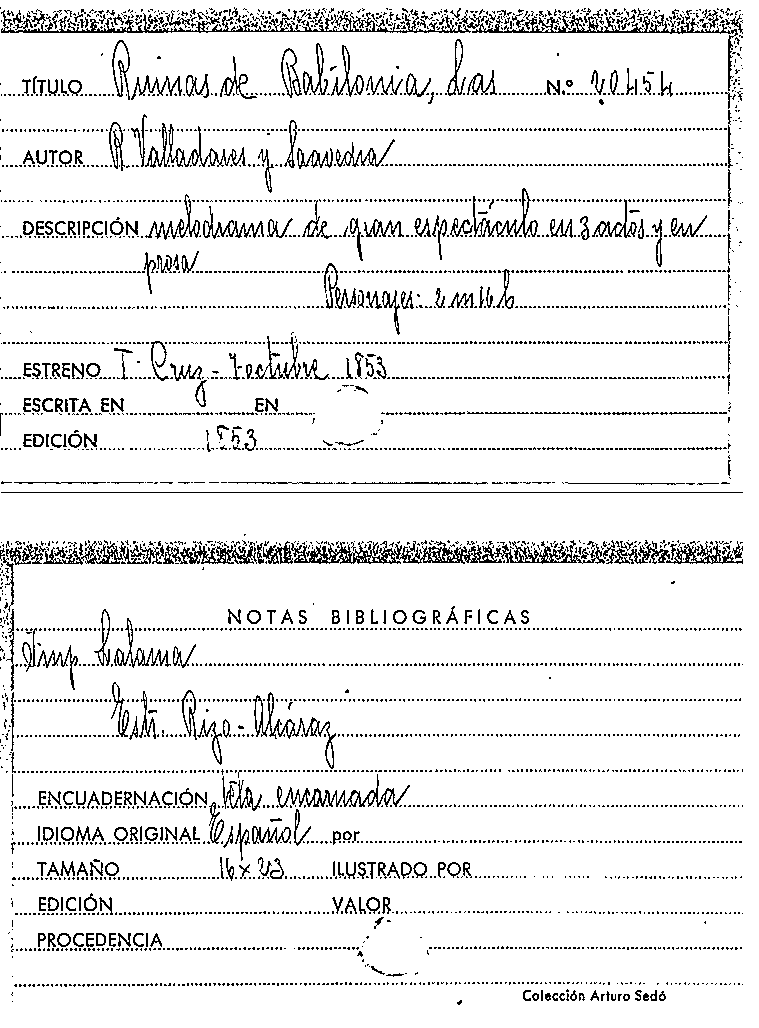 TÍTULO Ruinas de Babilonia, Las N.º 20454
AUTOR R Valladares y Saavedra
DESCRIPCIÓN melodrama de gran espectáculo en 3 actos y en
prosa
Personajes: 2 m 16 h
ESTRENO T. Cruz - 7 octubre 1853
ESCRITA EN EN
EDICIÓN 1853
NOTAS BIBLIOGRÁFICAS
Imp Lalama
Estr. Rizo - Alcáraz
ENCUADERNACIÓN tela encarnada
IDIOMA ORIGINAL Español por
TAMAÑO 16 x 23 ILUSTRADO POR
EDICIÓN VALOR
PROCEDENCIA
Colección Arturo Sedó